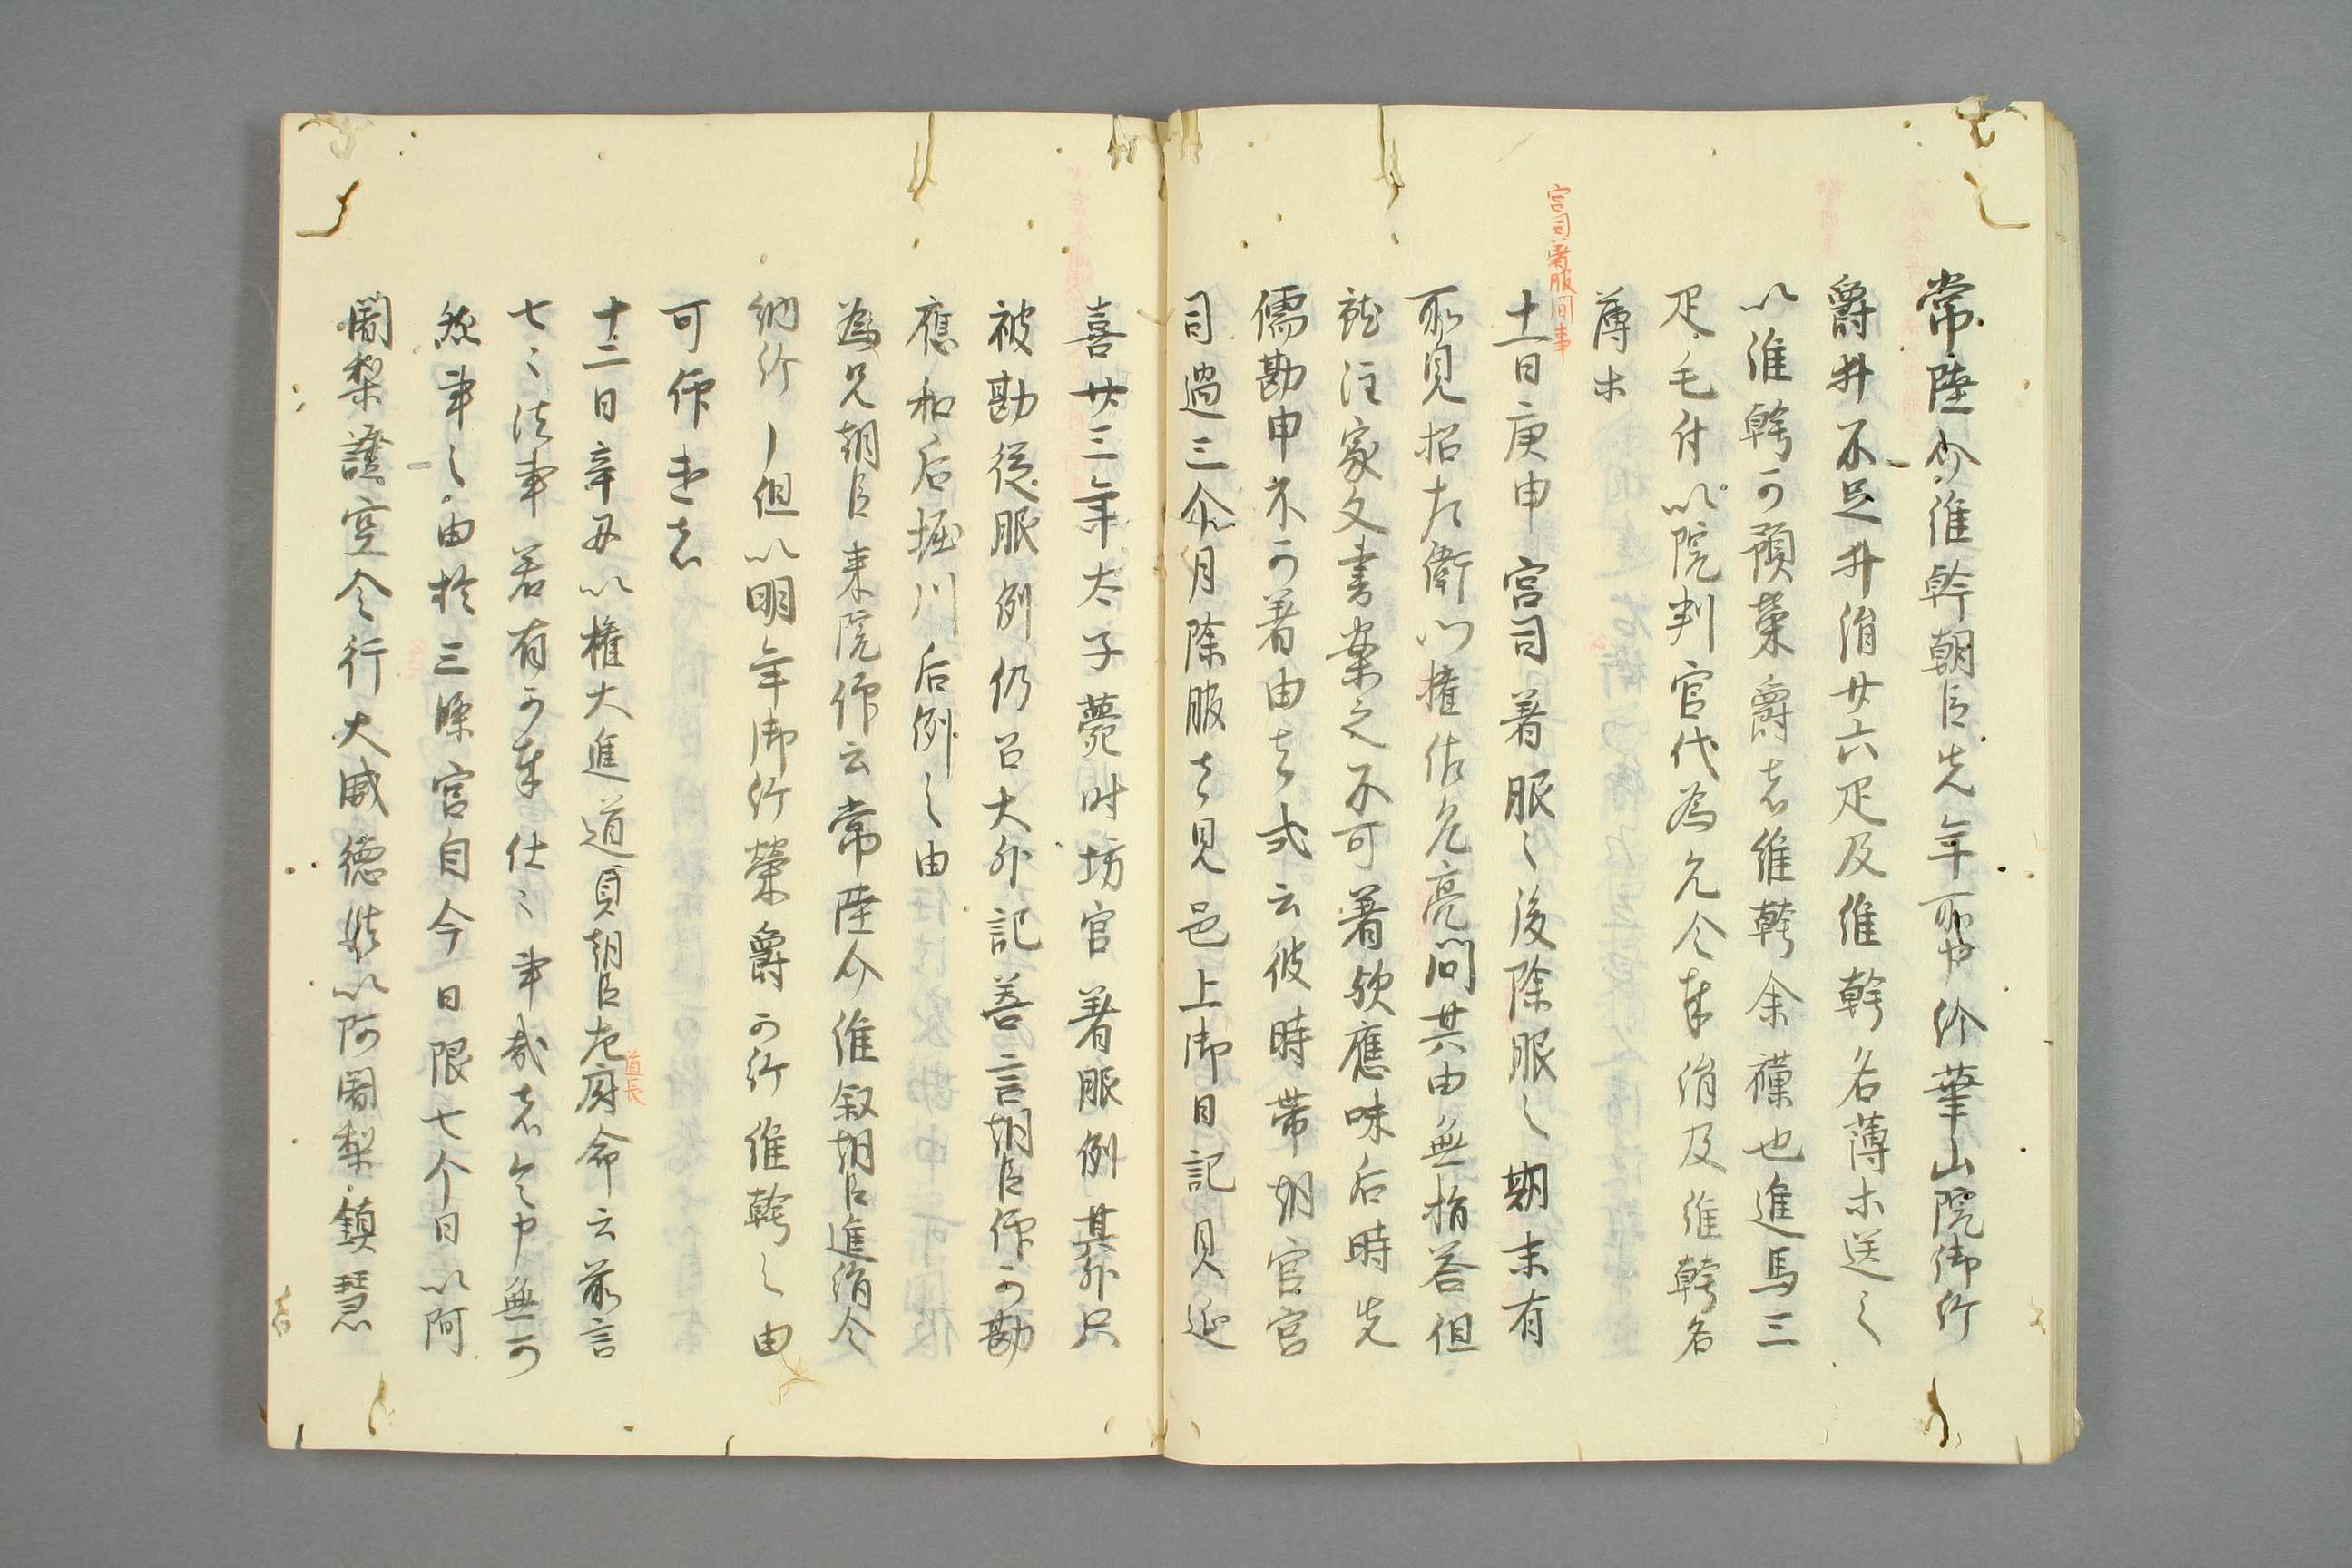 常陸介維幹朝臣先年所申給華山院御給
爵料不足料絹廿六疋及維幹名簿等送之
以維幹可預榮爵者維幹余僕也進馬三
疋毛付以院判官代為元令奉絹及維幹名
簿等
宮司着服間事
十一日庚申宮司着服之後除服之期未有
所見招左衛門権佐允亮問其由無指答但
就注家文書案之不可着欤應味后時先
儒勘申不可着由云々或云彼時帯朝官宮
司過三个月除服云々見邑上御日記見延
喜廿三年太子薨時坊官着服例其外只
被勘従服例仍召大外記善言朝臣仰可勘
應和后堀川后例之由
為元朝臣来院仰云常陸介維叙朝臣進絹令
納行了但以明年御給榮爵可給維幹之由
可仰遣者
十二日辛丑以権大進道貞朝臣左府命云前言
道長
七々法事若有可奉仕之事哉者令申無可
然事之由於三條宮自今日限七个日以阿
闍梨證空令行大威徳法以阿闍梨鎮慧